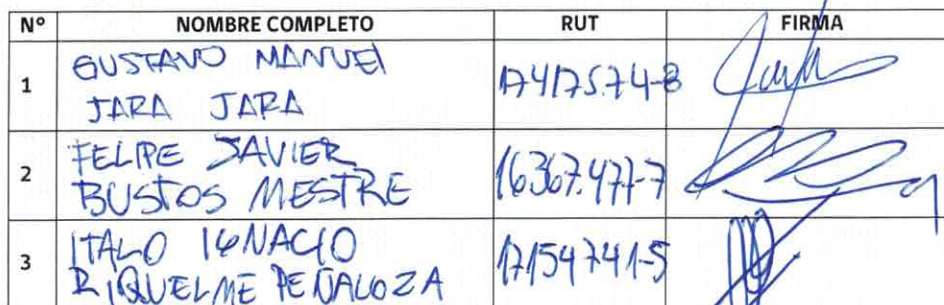 Nº NOMBRE COMPLETO RUT FIRMA
1 GUSTAVO MANUEL
JARA JARA
2 FELIPE JAVIER
BUSTOS MESTRE 16367.477-7
3 ITALO IGNACIO
RIQUELME PEÑALOZA 17154741-5